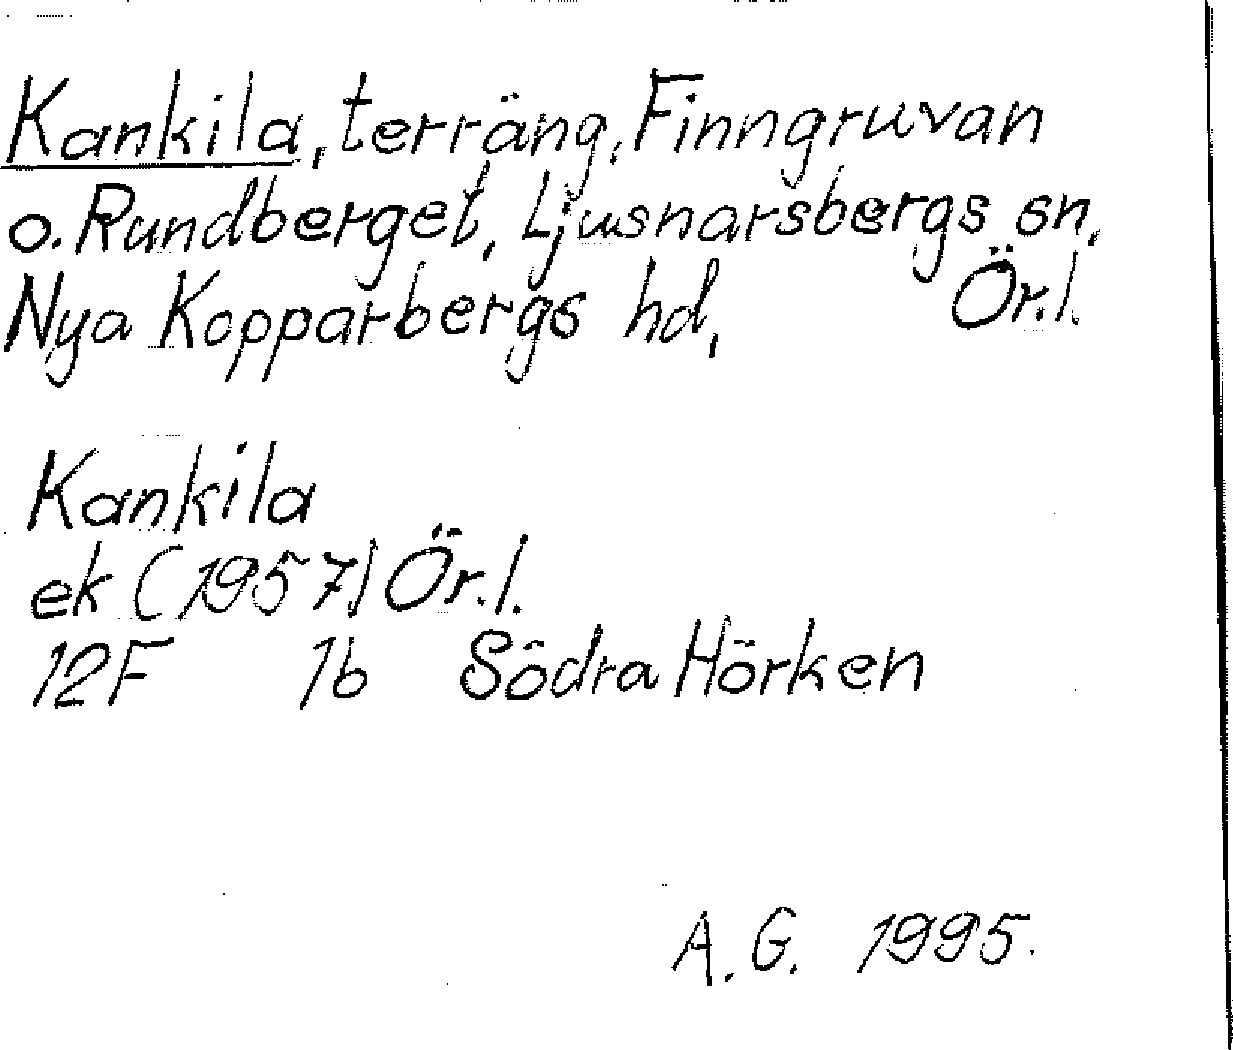 Kankila, terräng, Finngruvan
o. Rundberget, Ljusnarsbergs sn,
Nya Kopparbergs hd, Ör.l.
Kankila
ek (1957) Ör.l.
12F 1b Södra Hörken
A.G. 1995.